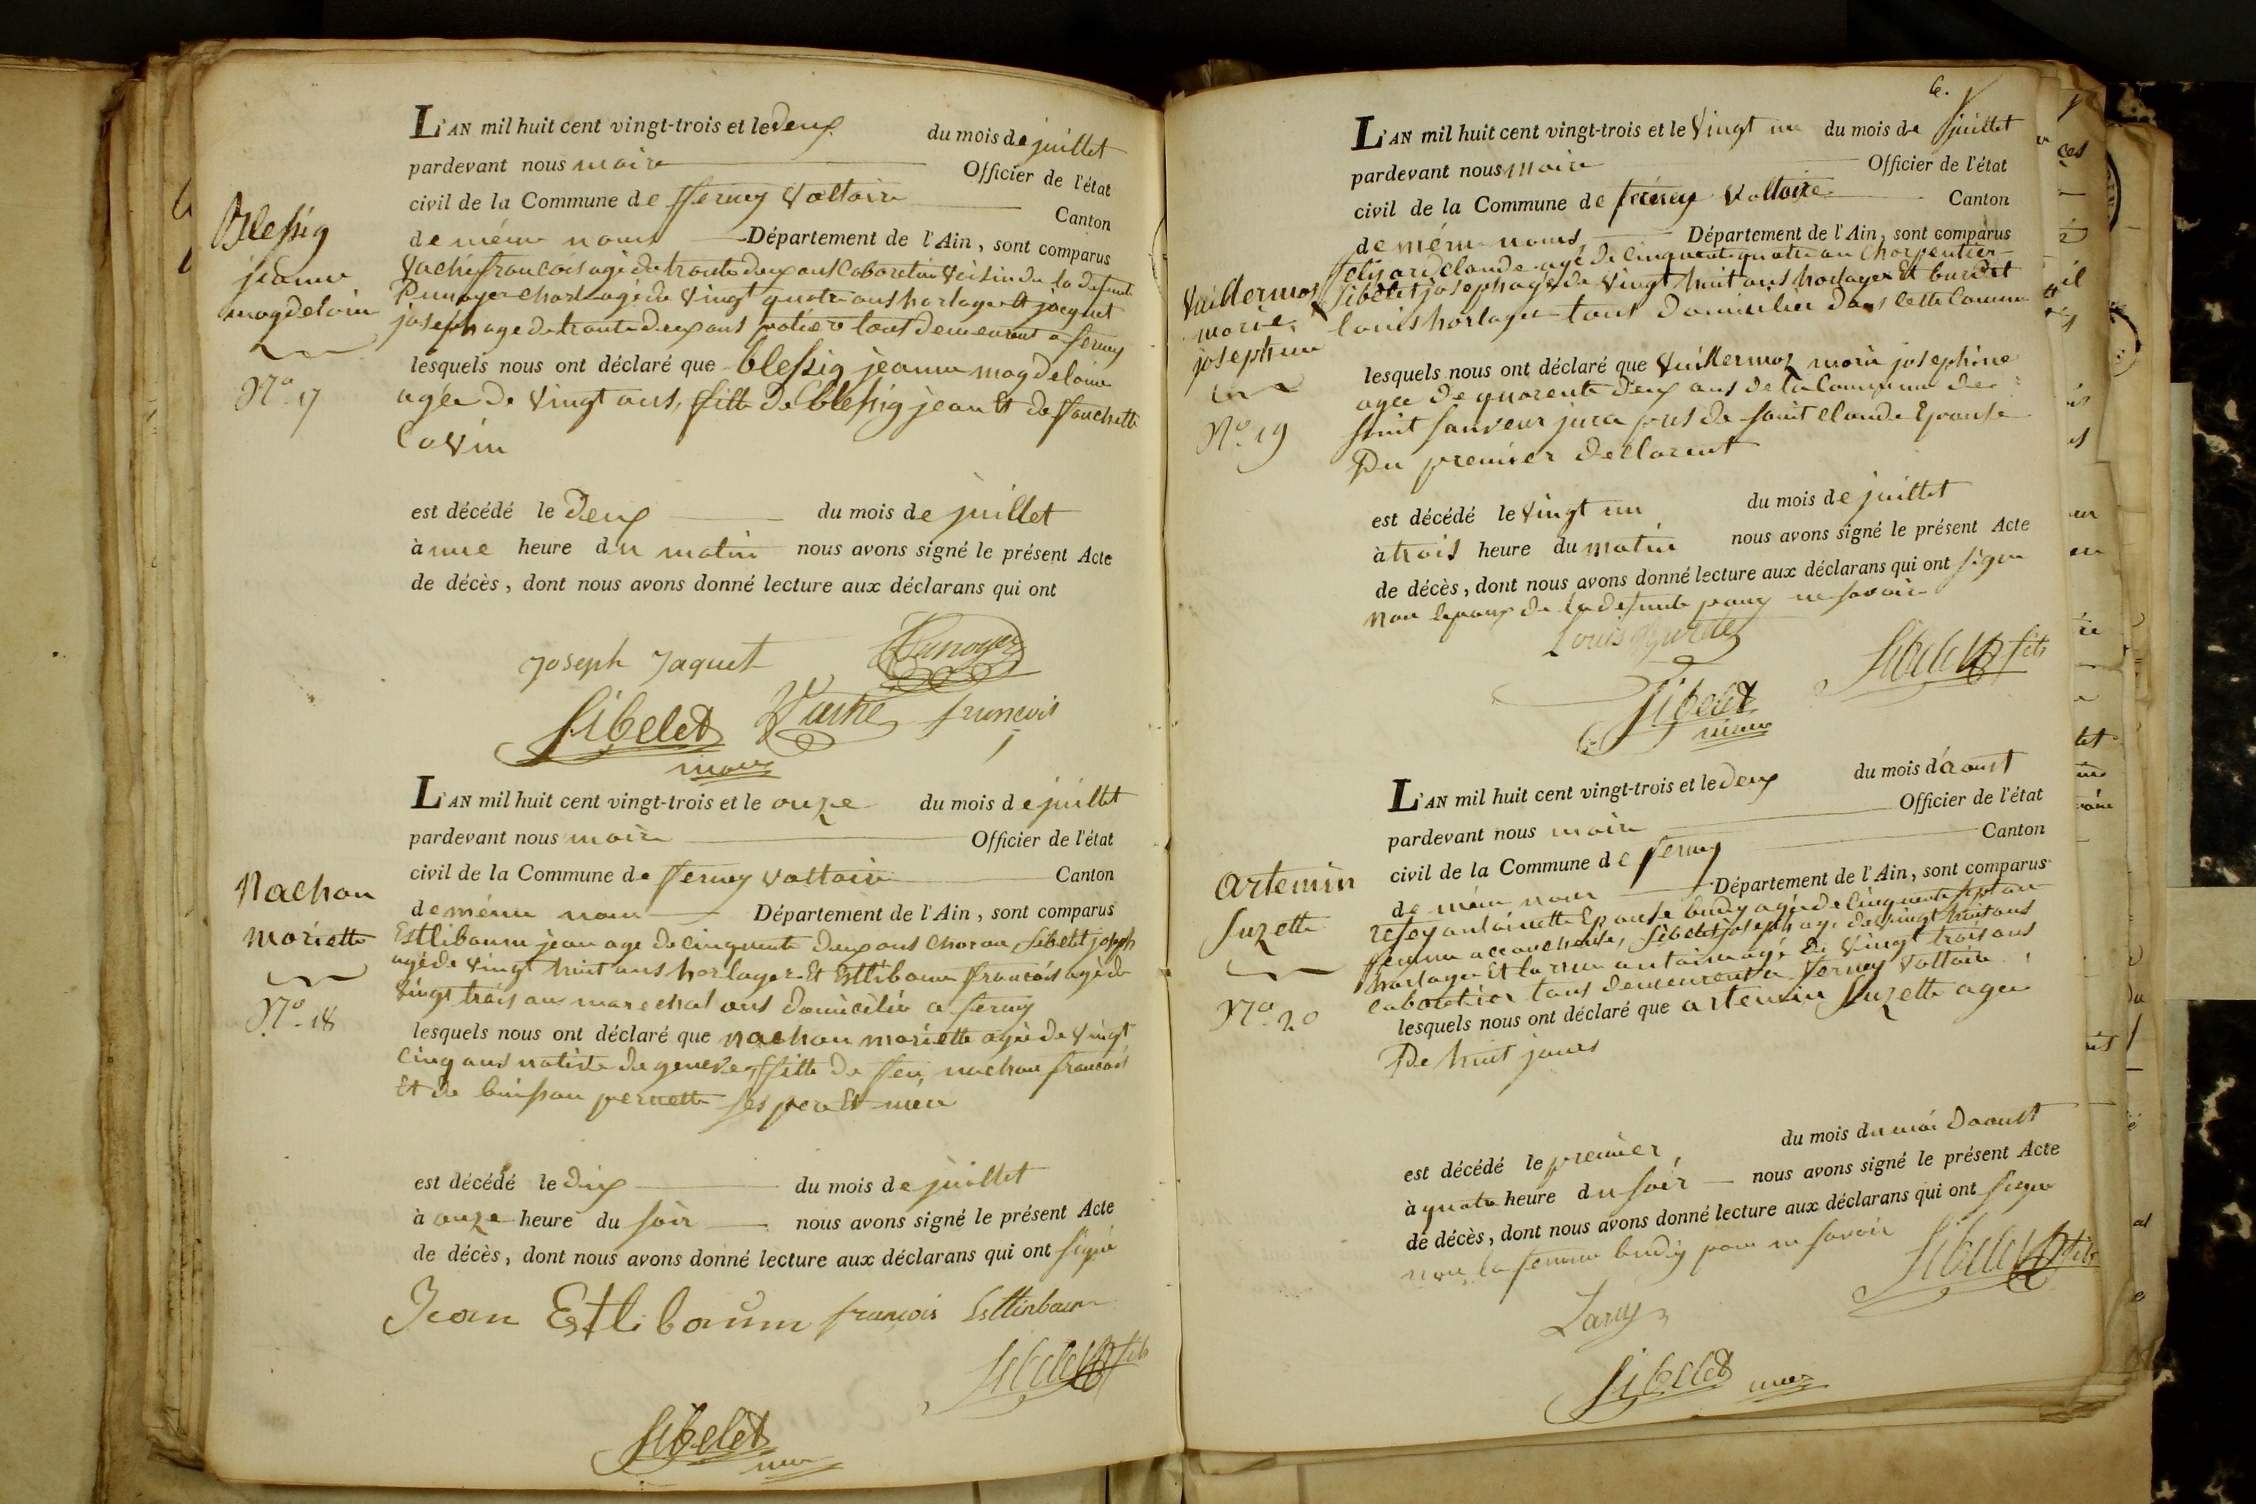 L'AN mil huit cent vingt-trois et le deux du mois de juillet
pardevant nous maire Officier de l'état
civil de la Commune de ferney Voltaire Canton
de même nom Département de l'Ain, sont comparus
Vaché francois agé de trante deux ans laboretin Voisin de la defunte
agé de Vingt quatre ans horlager Et jacquet
joseph age de trante deux ans potiere tous demeurant a ferney
lesquels nous ont déclaré que blessig jeanne magdelaine
agée de Vingt ans, fille de blessig jean Et de fanchette
Covin
est décédé le deux du mois de juillet
à une heure du matin nous avons signé le présent Acte
de décès, dont nous avons donné lecture aux déclarans qui ont
Blessig
jeanne
magdelaine
No. 17
Joseph Jaquet
Sibelet Vaché francois
maire
L'AN mil huit cent vingt-trois et le onze du mois de juillet
pardevant nous maire Officier de l'état
civil de la Commune de ferney Voltaire Canton
de même nom Département de l'Ain, sont comparus
Estlibaum jean age de cinquente deux ans charon Sibelet joseph
agé de Vingt huit ans horlager Et Estlibaum francois agé de
Vingt trois ans marechal ous domicilié a ferney
lesquels nous ont déclaré que nachon mariette agée de Vingt
cinq ans native de geneve, fille de feu, nachon francois
Et de buisson pernette ses pere Et mere
est décédé le dix du mois de juillet
à onze heure du soir nous avons signé le présent Acte
de décès, dont nous avons donné lecture aux déclarans qui ont signé
Nachon
Mariette
No. 18
Jean Estlibaum francois Esttinbaum
Sibelet fils
Sibelet
maire
6.
L'AN mil huit cent vingt-trois et le Vingt un du mois de juillet
pardevant nous maire Officier de l'état
civil de la Commune de ferney Voltaire Canton
de même nom Département de l'Ain, sont comparus
claude agé de cinquente quatre an Charpentier
Sibelet joseph agé de Vingt huit ans horlager Et burdet
louis horlager tous domicilier dans cette Commune
lesquels nous ont déclaré que Vuillermoz marie josephine
agee de quarente deux ans de la Commune de
saint sauveur jura pres de saint claude Epouse
Du premier declarent
est décédé le Vingt un du mois de juillet
à trois heure du matin nous avons signé le présent Acte
de décès, dont nous avons donné lecture aux déclarans qui ont signe
non lepoux de la defunte pour ne savoir
Vuillermoz
marie
josephine
No. 19
Louis Burdet
Sibelet fils
Sibelet
maire
L'AN mil huit cent vingt-trois et le deux du mois d'aoust
pardevant nous maire Officier de l'état
civil de la Commune de ferney Canton
de même nom Département de l'Ain, sont comparus
antoinette Epouse budiy agée de cinquente sept an
femme accoucheuse, Sibelet joseph age de vingt huit ans
horlager Et antoine agé de Vingt trois ans
tous demeurent a ferney Voltaire
lesquels nous ont déclaré que artemin Suzette agee
De huit jours
est décédé le premier, du mois du moi Daoust
à quatre heure du soir nous avons signé le présent Acte
de décès, dont nous avons donné lecture aux déclarans qui ont signe
non la femme budiy pour ne savoir
artemin
Suzette
No. 20
Sibelet fils
Sibelet maire